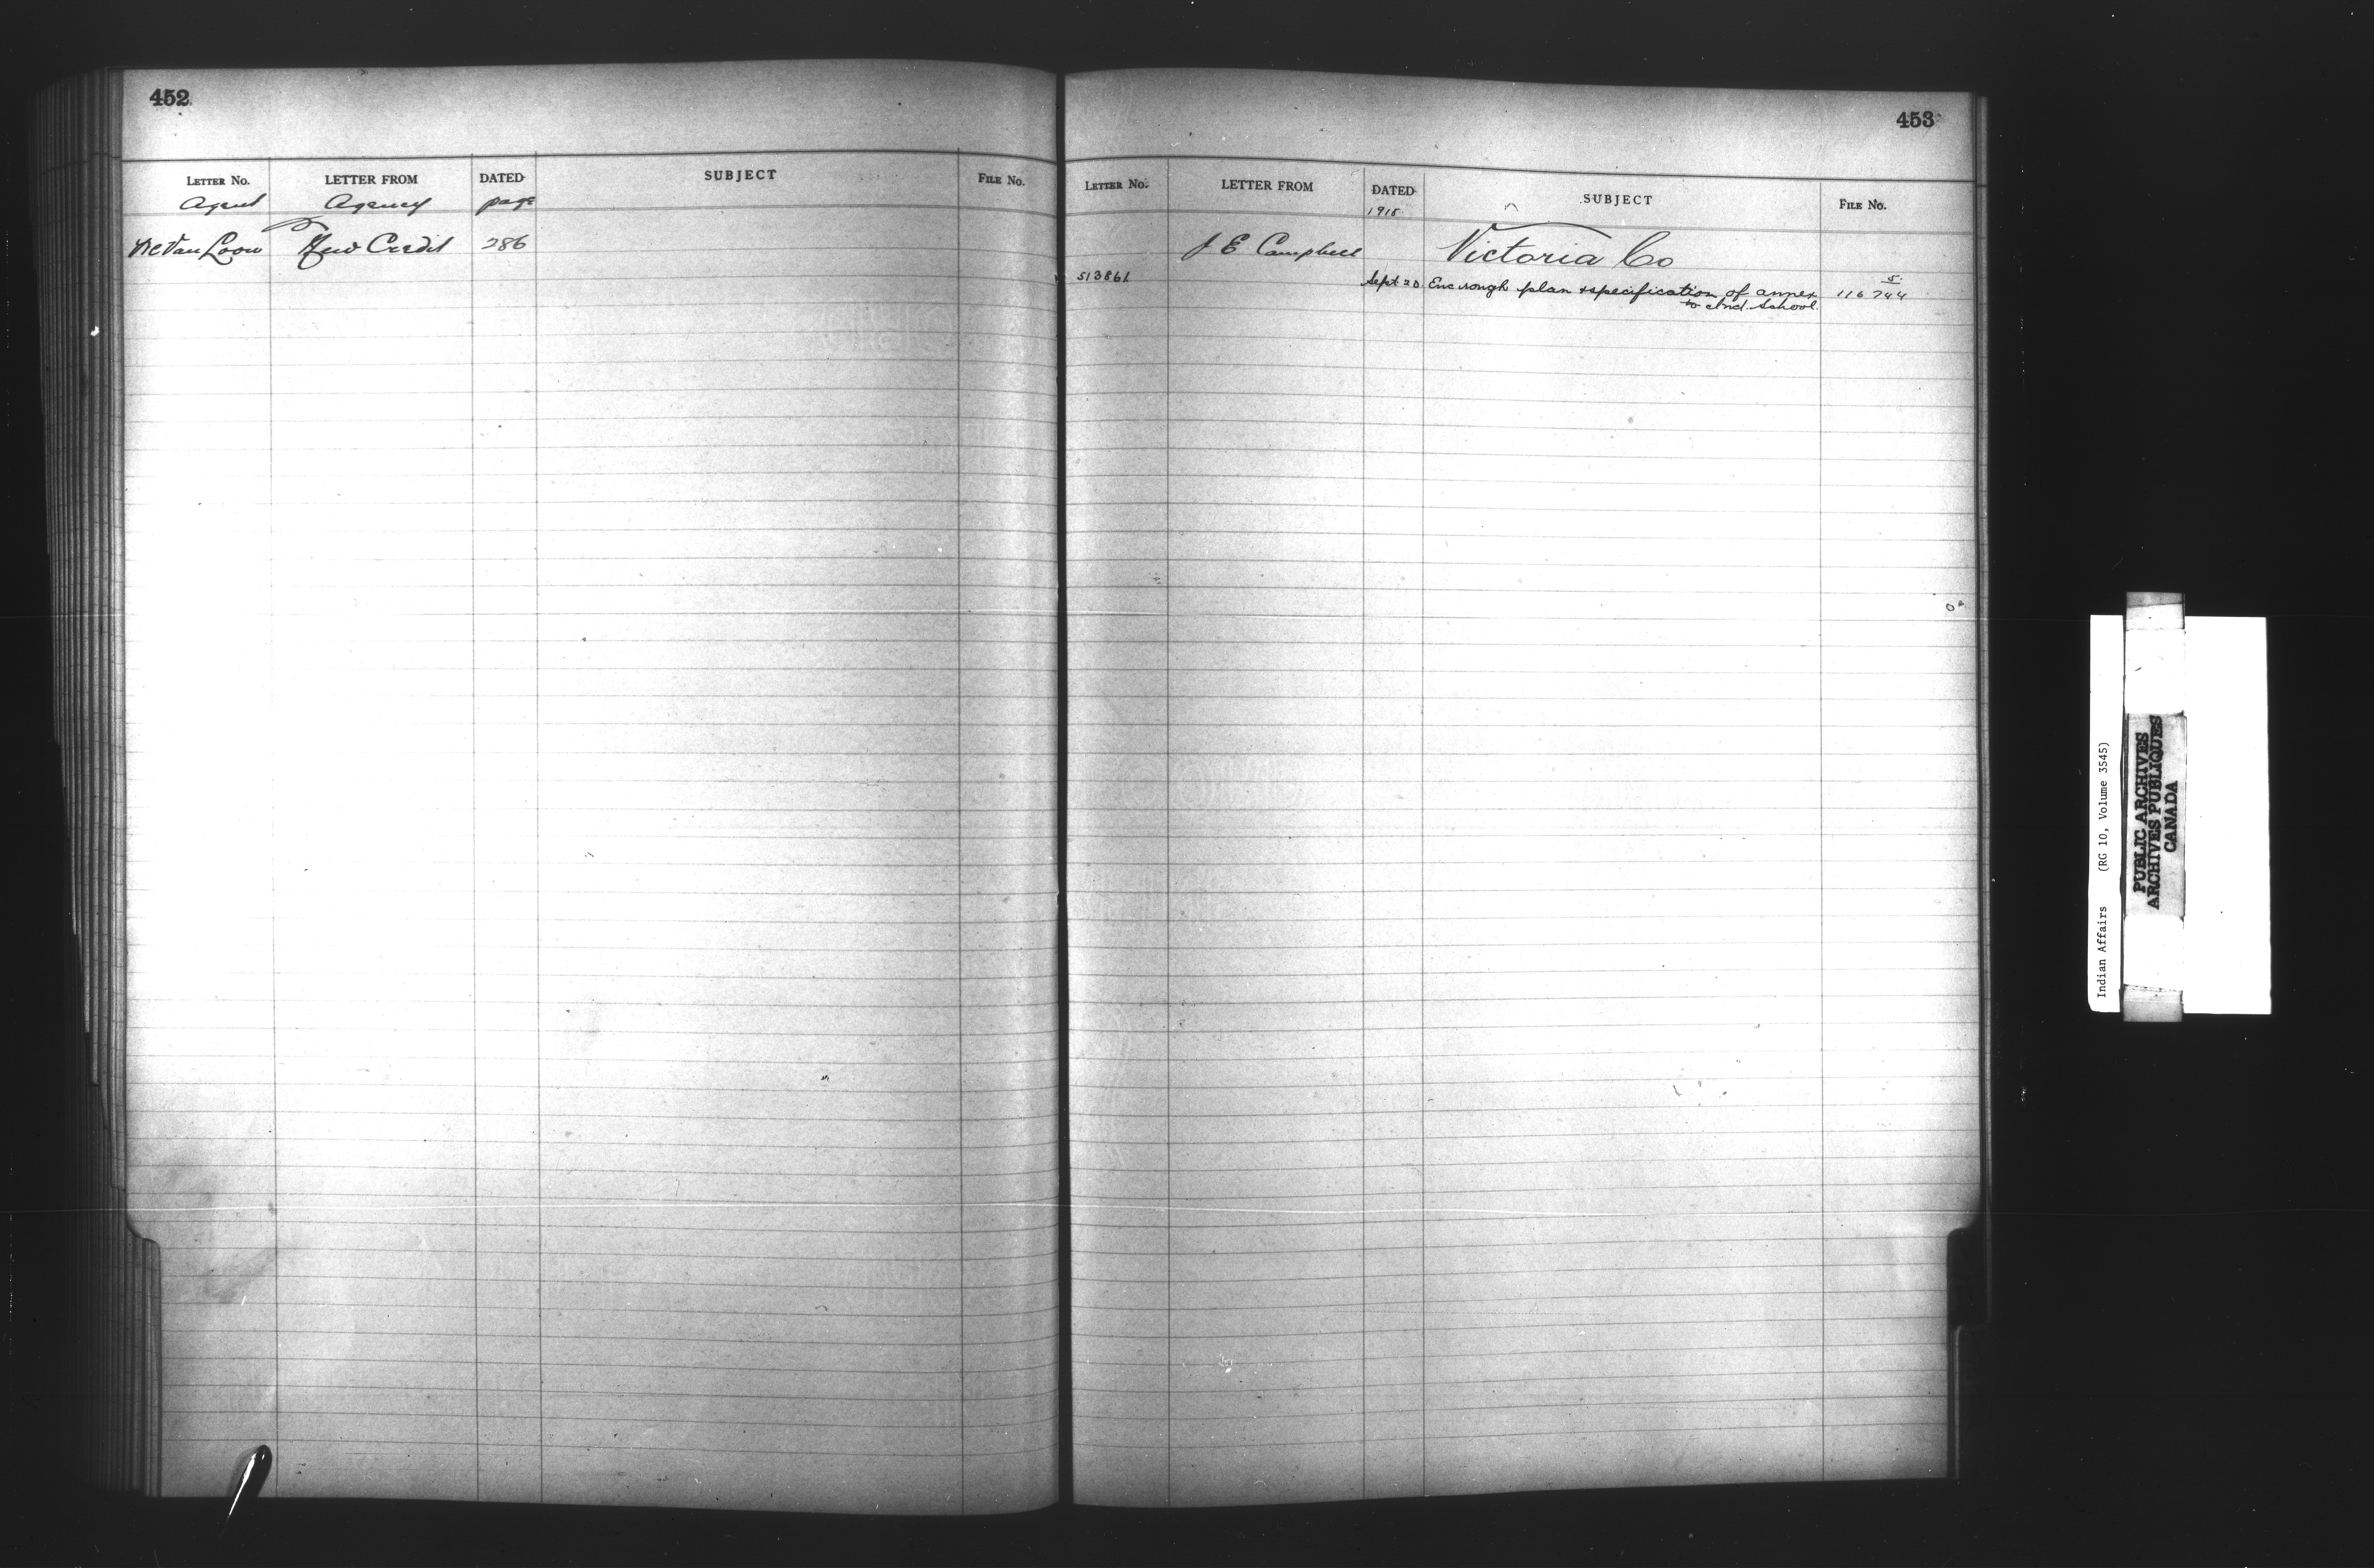 452
LETTER NO. LETTER FROM DATED SUBJECT FILE NO.
Agent Agency page
Van Loon New Credit 286
453
LETTER NO. LETTER FROM DATED SUBJECT FILE NO.
1915
J E Campbell Victoria Co
513861 Sept 20 Enc rough plan & specification of annex 116744
5
to Ind. School.
Indian Affairs (RG 10, Volume 3545)
PUBLIC ARCHIVES
ARCHIVES PUBLIQUES
CANADA